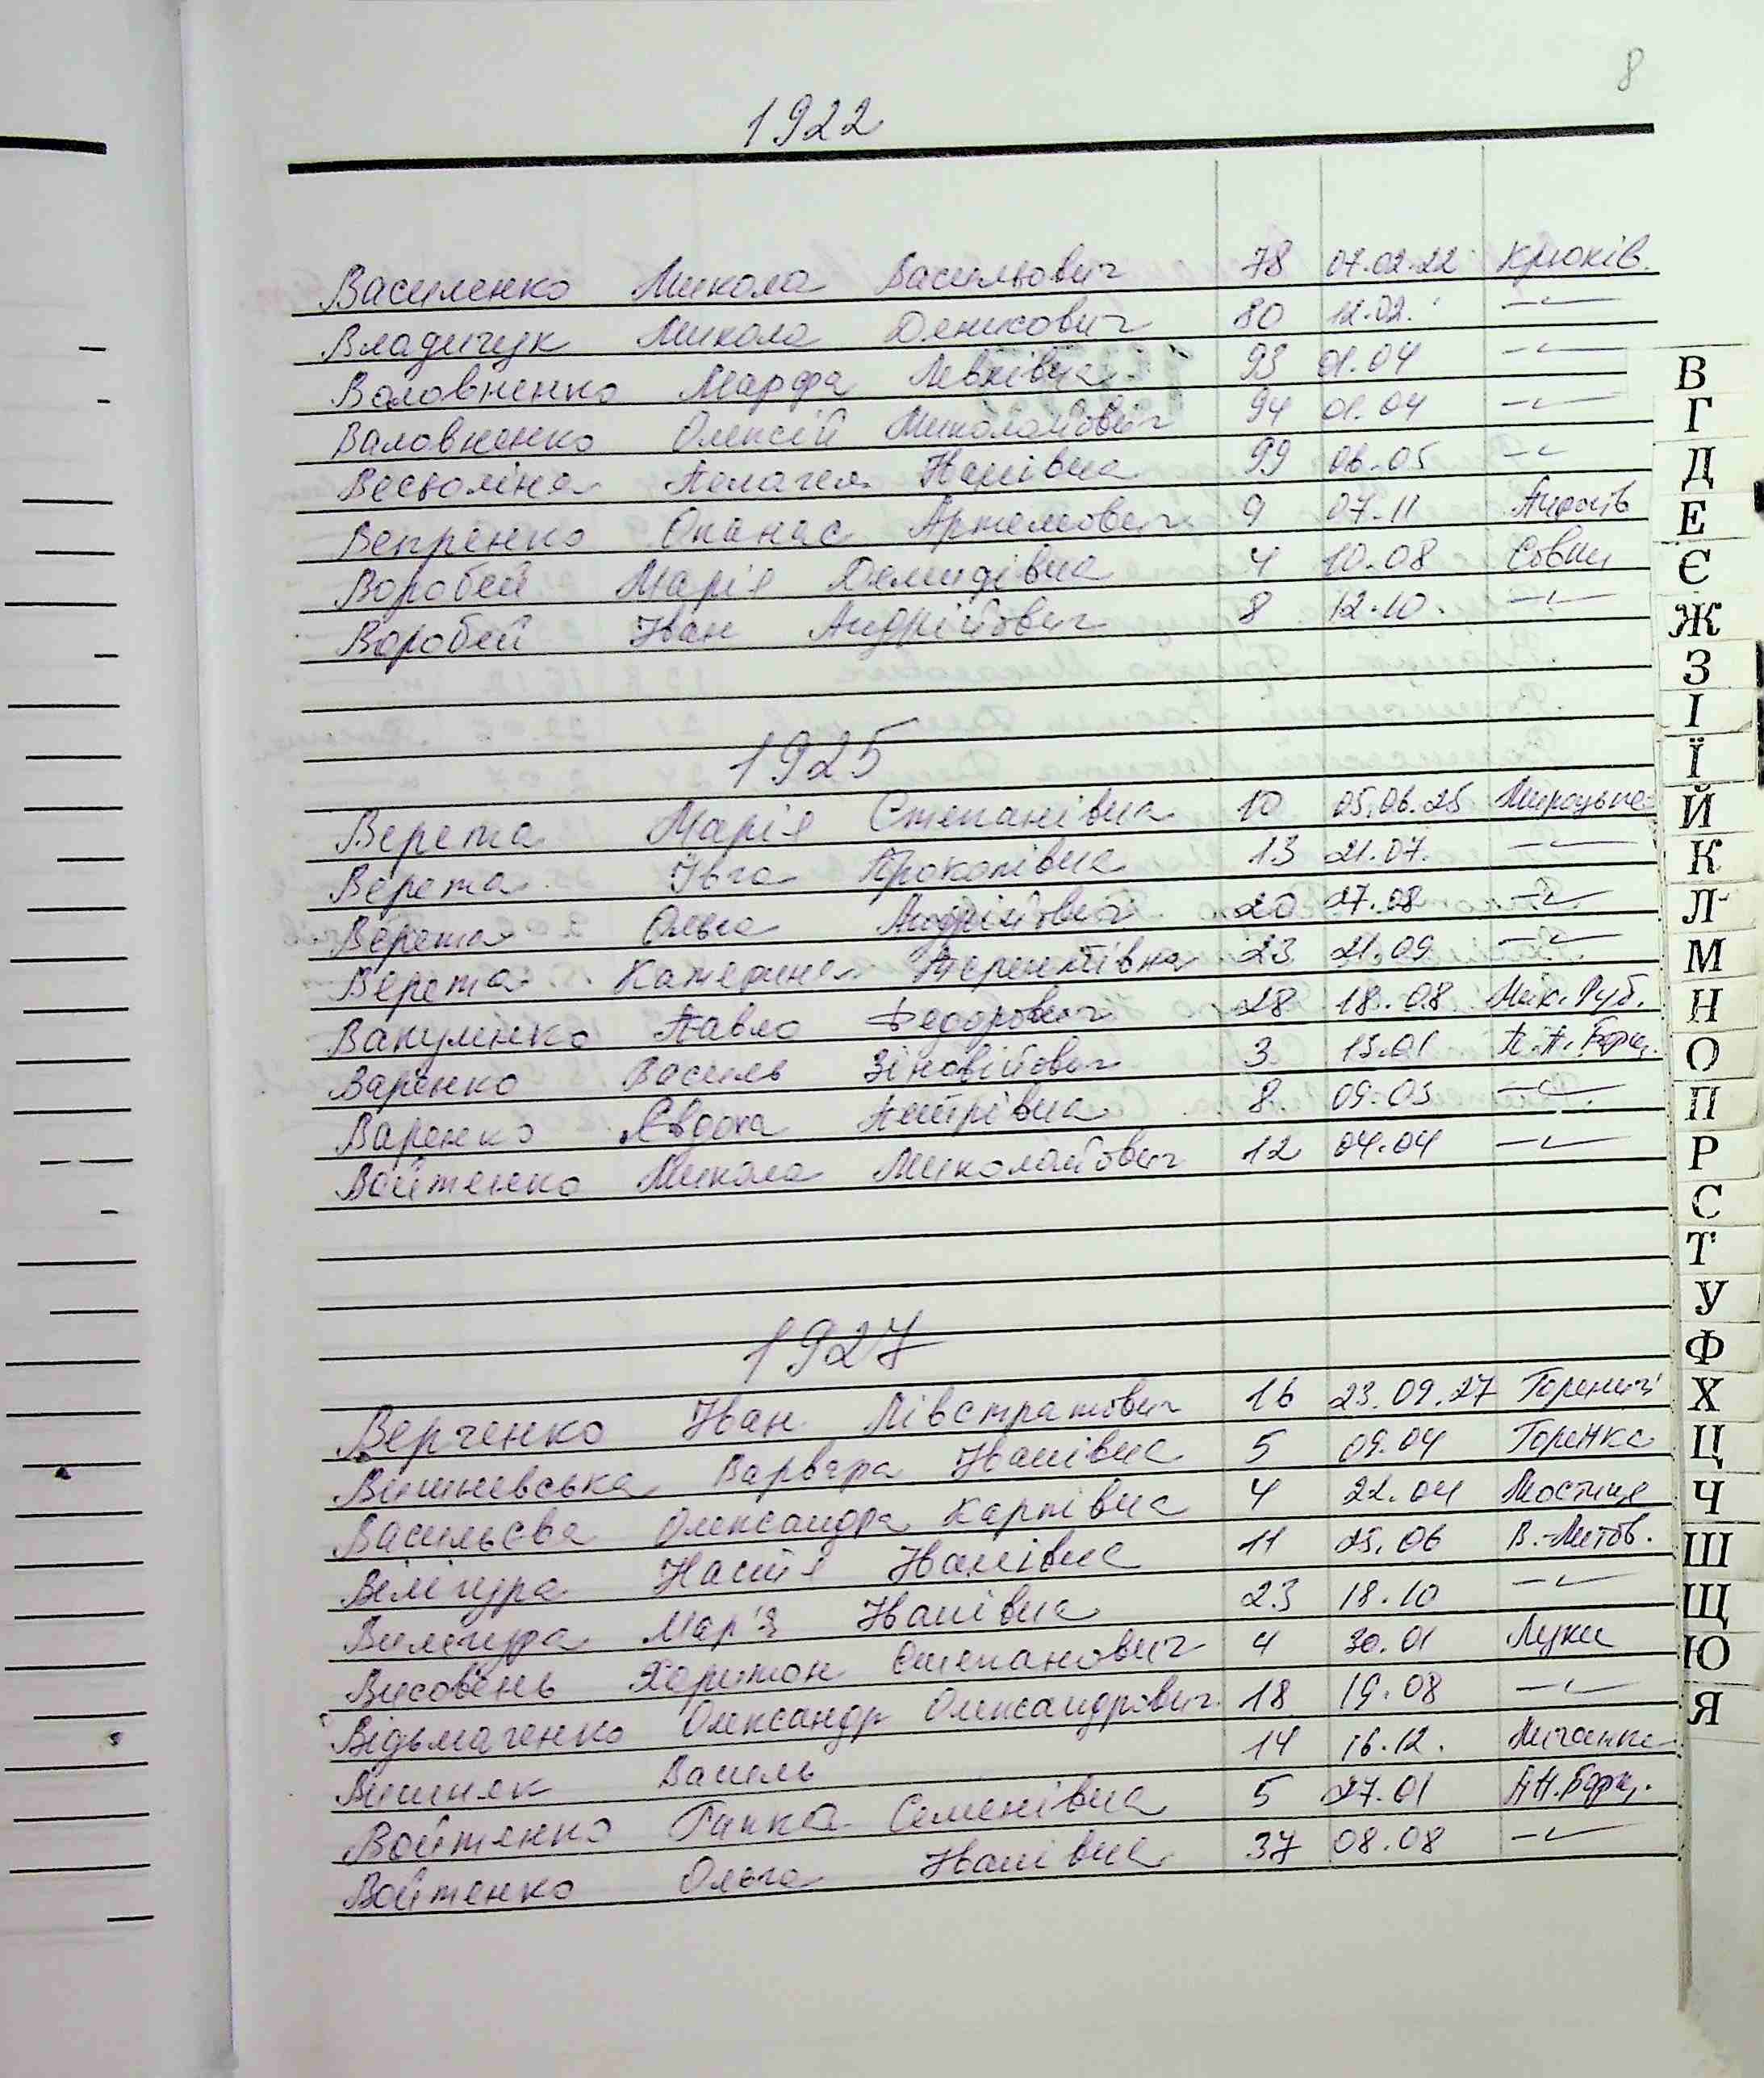 8
1922
Василенко Микола Васильович 78 07.02.22 Крюків.
Владичук Микола Денисович 80 12.02. —"—
Воловненко Марфа Левківна 93 01.04 —"—
Воловненко Олексій Миколайович 94 01.04 —"—
Весьоліна Пелагея Іванівна 99 06.05 —"—
Вепренко Опанас Артемович 9 07.11
Воробей Марія Демидівна 4 10.08 Совки
Воробей Іван Андрійович 8 12.10. —"—
1925
Верета Марія Степанівна 10 05.06.25 Мироцьке
Верета Івга Прокопівна 13 21.07. —"—
Верета Ольга Андріївна 20 27.08 —"—
Верета Катерина Терентіївна 23 21.09 —"—
Вакуленко Павло Федорович 28 18.08 Мик. Руб.
Варенко Василь Зіновійович 3 13.01 П.П. Борщ.
Варенко Євдоха Петрівна 8 09.03 —"—
Войтенко Микола Миколайович 12 04.04 —"—
1927
Верченко Іван Лівстратович 16 23.09.27 Гореничі
Вишневська Варвара Іванівна 5 09.04 Горенка
Васильєва Олександра Карпівна 4 22.04 Мостище
Вілігура Настя Іванівна 11 25.06 В.-Литов.
Вилегура Мар'я Іванівна 23 18.10 —"—
Висовень Харитон Степанович 4 30.01 Луки
Відьмаченко Олександр Олександрович 18 19.08 —"—
Вишняк Василь 14 16.12. Личанка
Войтенко Гапка Семенівна 5 27.01 П.П. Борщ.
Войтенко Ольга Іванівна 37 08.08 —"—
В
Г
Д
Е
Є
Ж
З
І
Ї
Й
К
Л
М
Н
О
П
Р
С
Т
У
Ф
Х
Ц
Ч
Ш
Щ
Ю
Я